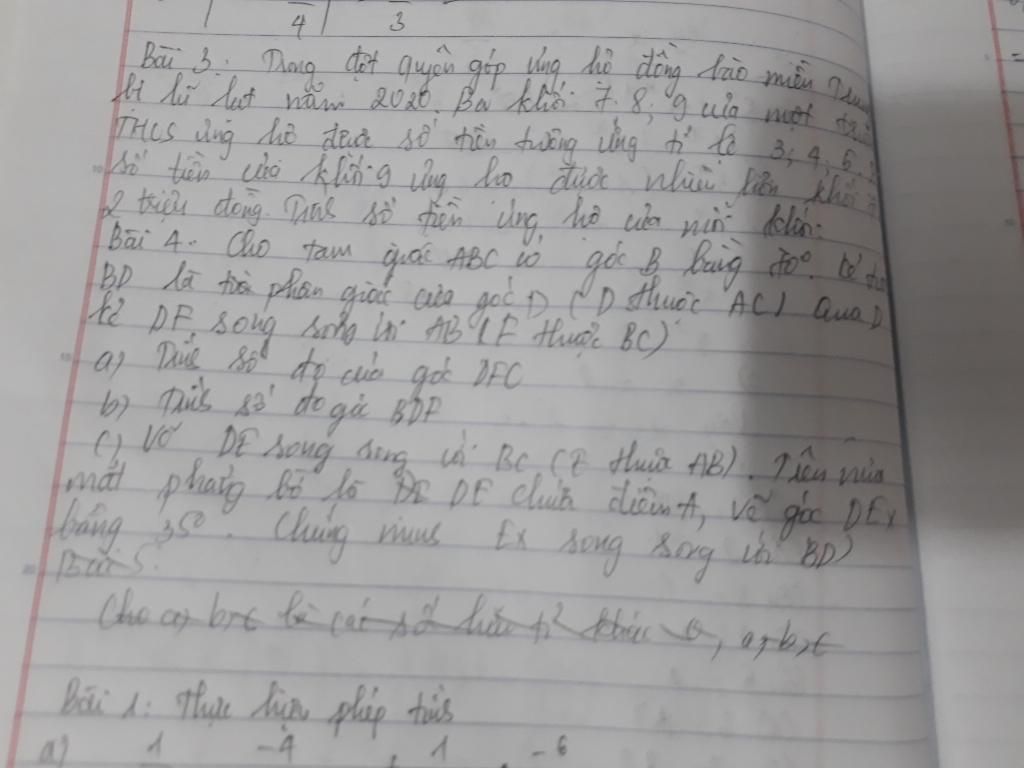 4 3
Bài 3. Trong đợt quyên góp ủng hộ đồng bào miền
bị lũ lụt năm 2020. Ba khối 7, 8, 9 của một
THCS ủng hộ được số tiền tương ứng tỉ lệ 3; 4; 5.
số tiền của khối 9 ủng hộ được nhiều hơn khối 7
2 triệu đồng. Tính số tiền ủng hộ của mỗi khối.
Bài 4. Cho tam giác ABC có góc B bằng 70°.
BD là tia phân giác của góc (D thuộc AC) Qua D
kẻ DF song song với AB (F thuộc BC)
a) Tính số đo của góc DFC
b) Tính số đo góc BDF
c) Vẽ DE song song với BC (E thuộc AB). Trên nửa
mặt phẳng bờ là DE chứa điểm A, vẽ góc DEx
bằng 35°. Chứng minh Ex song song với BD
Bài 5.
Cho a, b, c là các số hữu tỉ khác 0, a, b, c
Bài 1: Thực hiện phép tính
a) 1 -4 1 -6